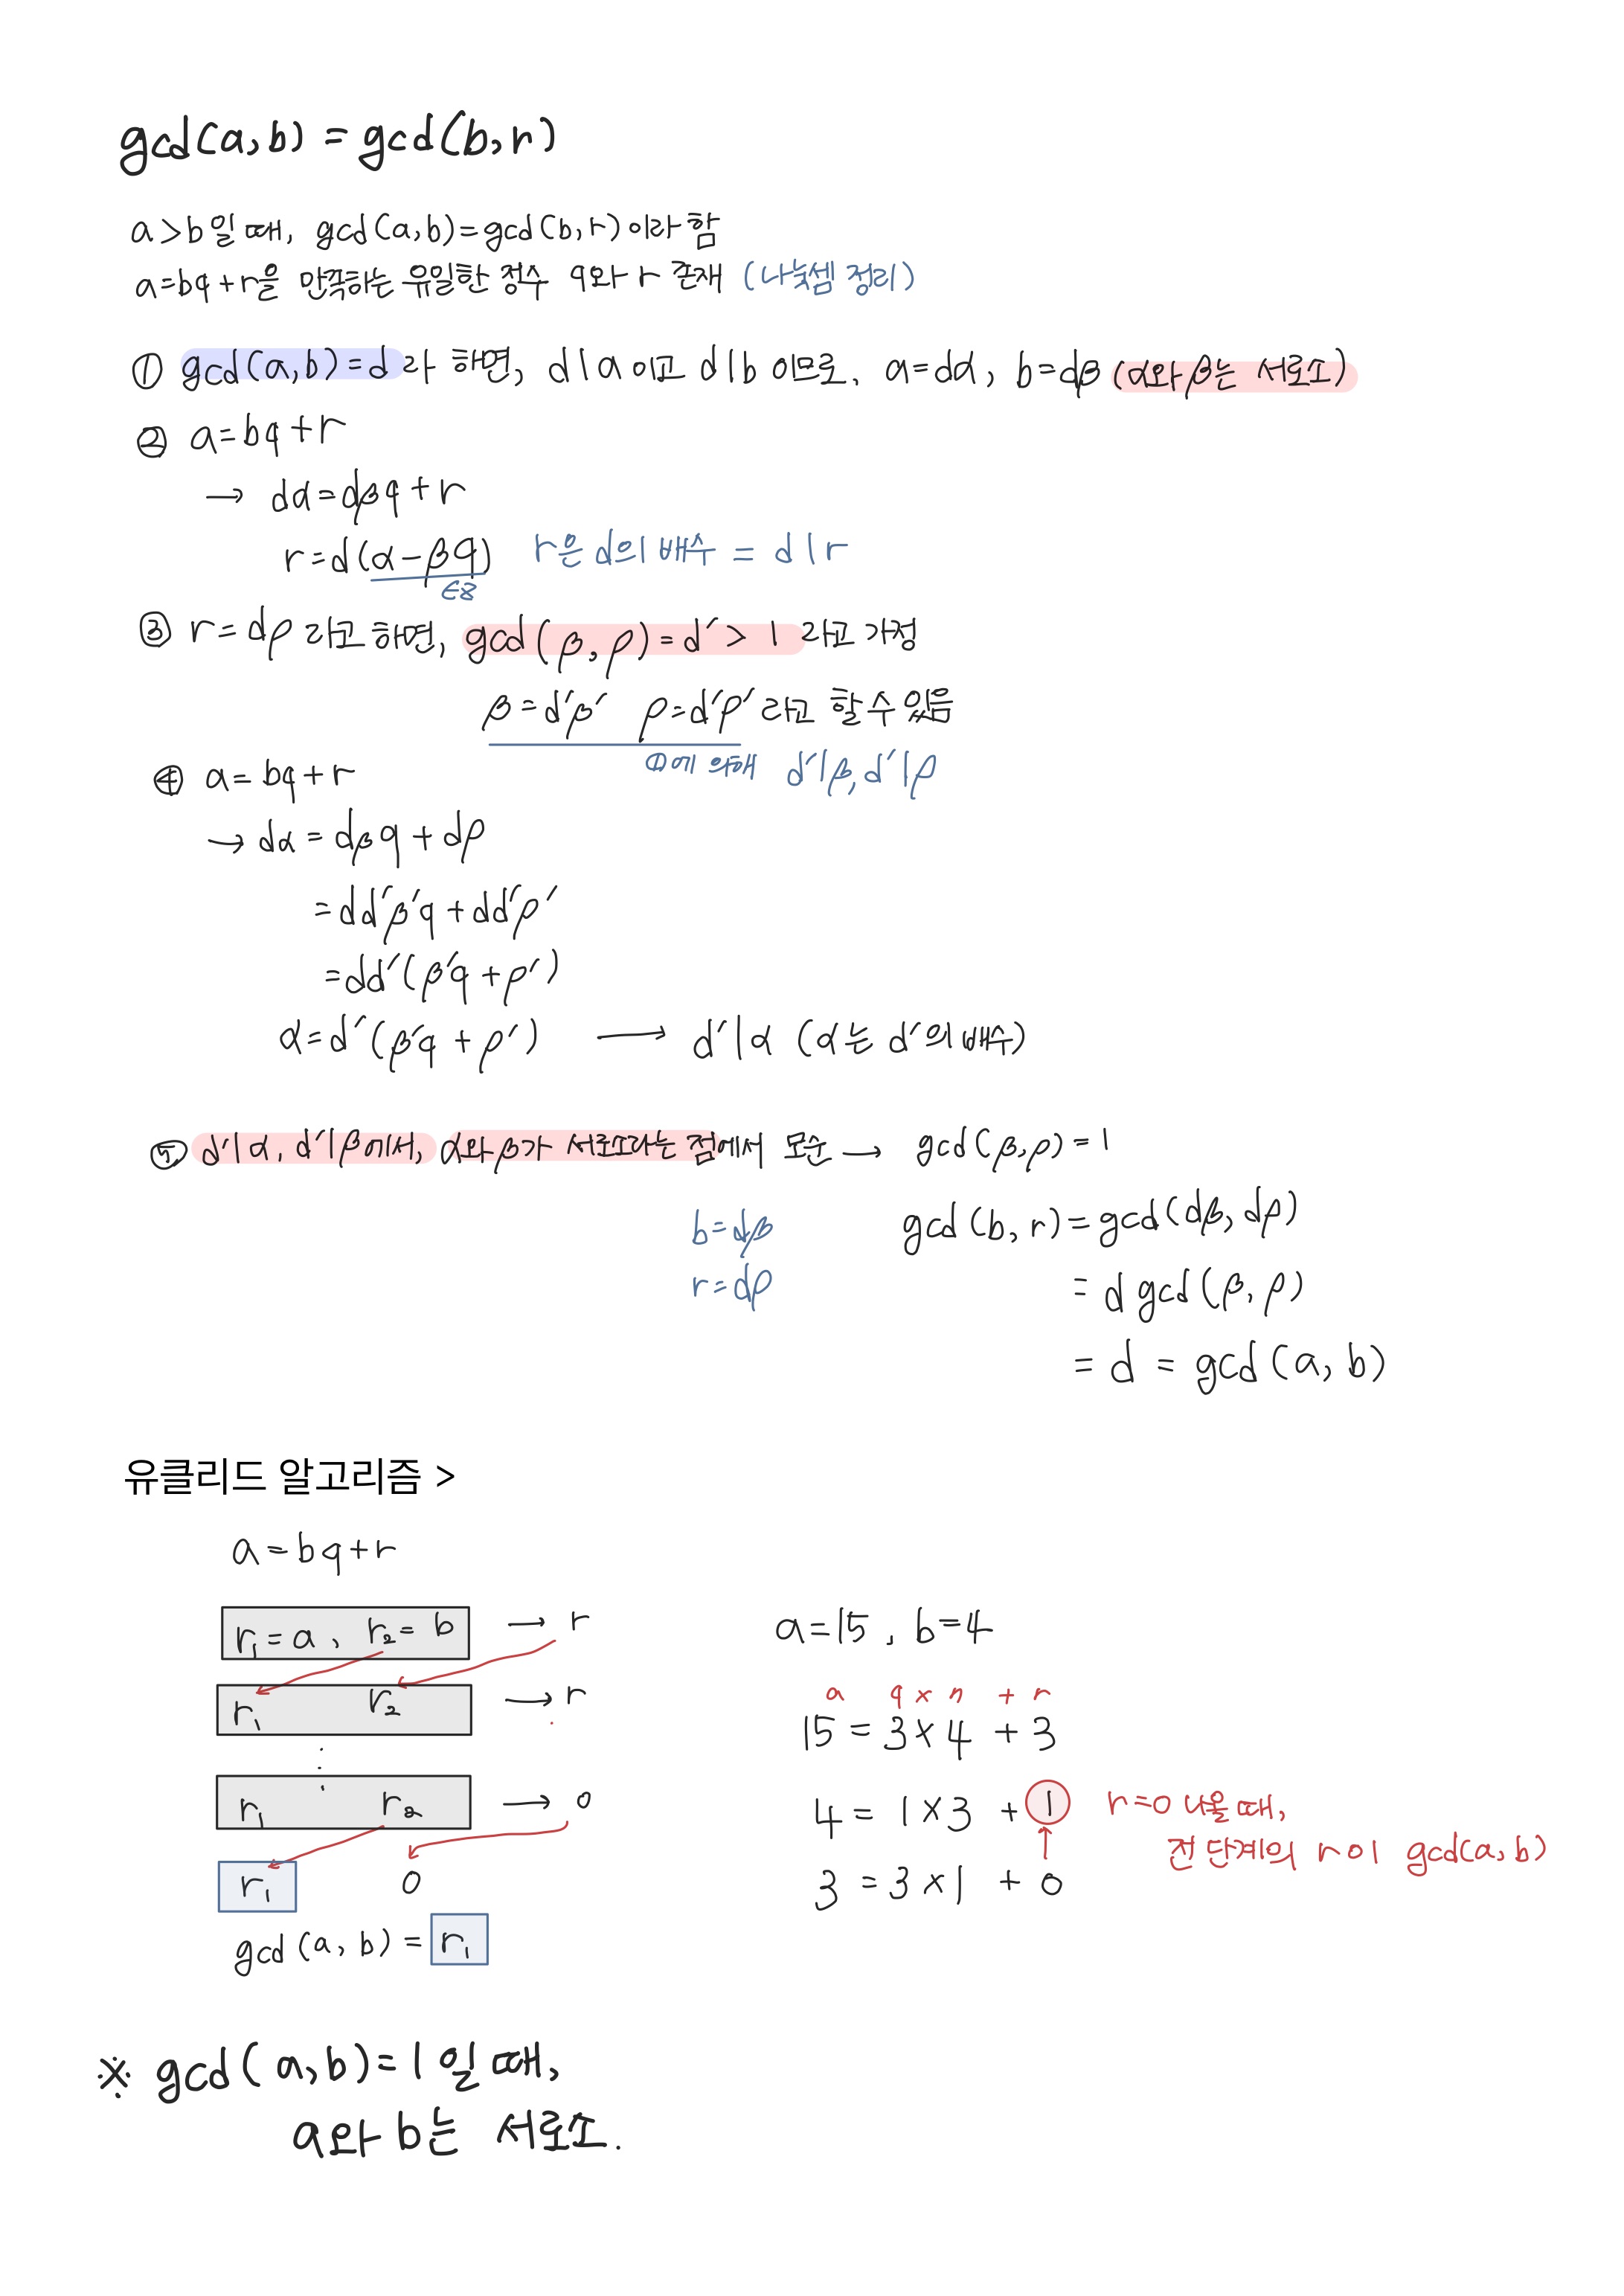 gcd(a,b) = gcd(b,r)
a>b일 때, gcd(a,b)=gcd(b,r)이라 함
a=bq+r을 만족하는 유일한 정수 q와 r 존재 (나눗셈 정리)
① gcd(a,b)=d라 하면, d|a이고 d|b이므로, a=dα, b=dβ (α와 β는 서로소)
② a=bq+r
→ dα=dβq+r
r=d(α-βq) r은 d의 배수 = d|r
∈ℤ
③ r=dρ 라고 하면, gcd(β,ρ)=d′>1 라고 가정
β=d′β′ ρ=d′ρ′ 라고 할 수 있음
①에 의해 d′|β, d′|ρ
④ a=bq+r
→ dα = dβq+dρ
=dd′β′q+dd′ρ′
=dd′(β′q+ρ′)
α=d′(β′q+ρ′) → d′|α (α는 d′의 배수)
⑤ d′|α, d′|β에서, α와 β가 서로소라는 점에서 모순 → gcd(β,ρ)=1
b=dβ gcd(b,r)=gcd(dβ,dρ)
r=dρ = d gcd(β,ρ)
= d = gcd(a,b)
유클리드 알고리즘 >
a=bq+r
r₁=a, r₂=b → r
r₁ r₂ → r
⋮
r₁ r₂ → 0
r₁ 0
gcd(a,b) = r₁
a=15, b=4
a q × n + r
15 = 3×4 + 3
4 = 1×3 + 1 r=0 나올 때,
전 단계의 r이 gcd(a,b)
3 = 3×1 + 0
※ gcd(a,b)=1일 때,
a와 b는 서로소.